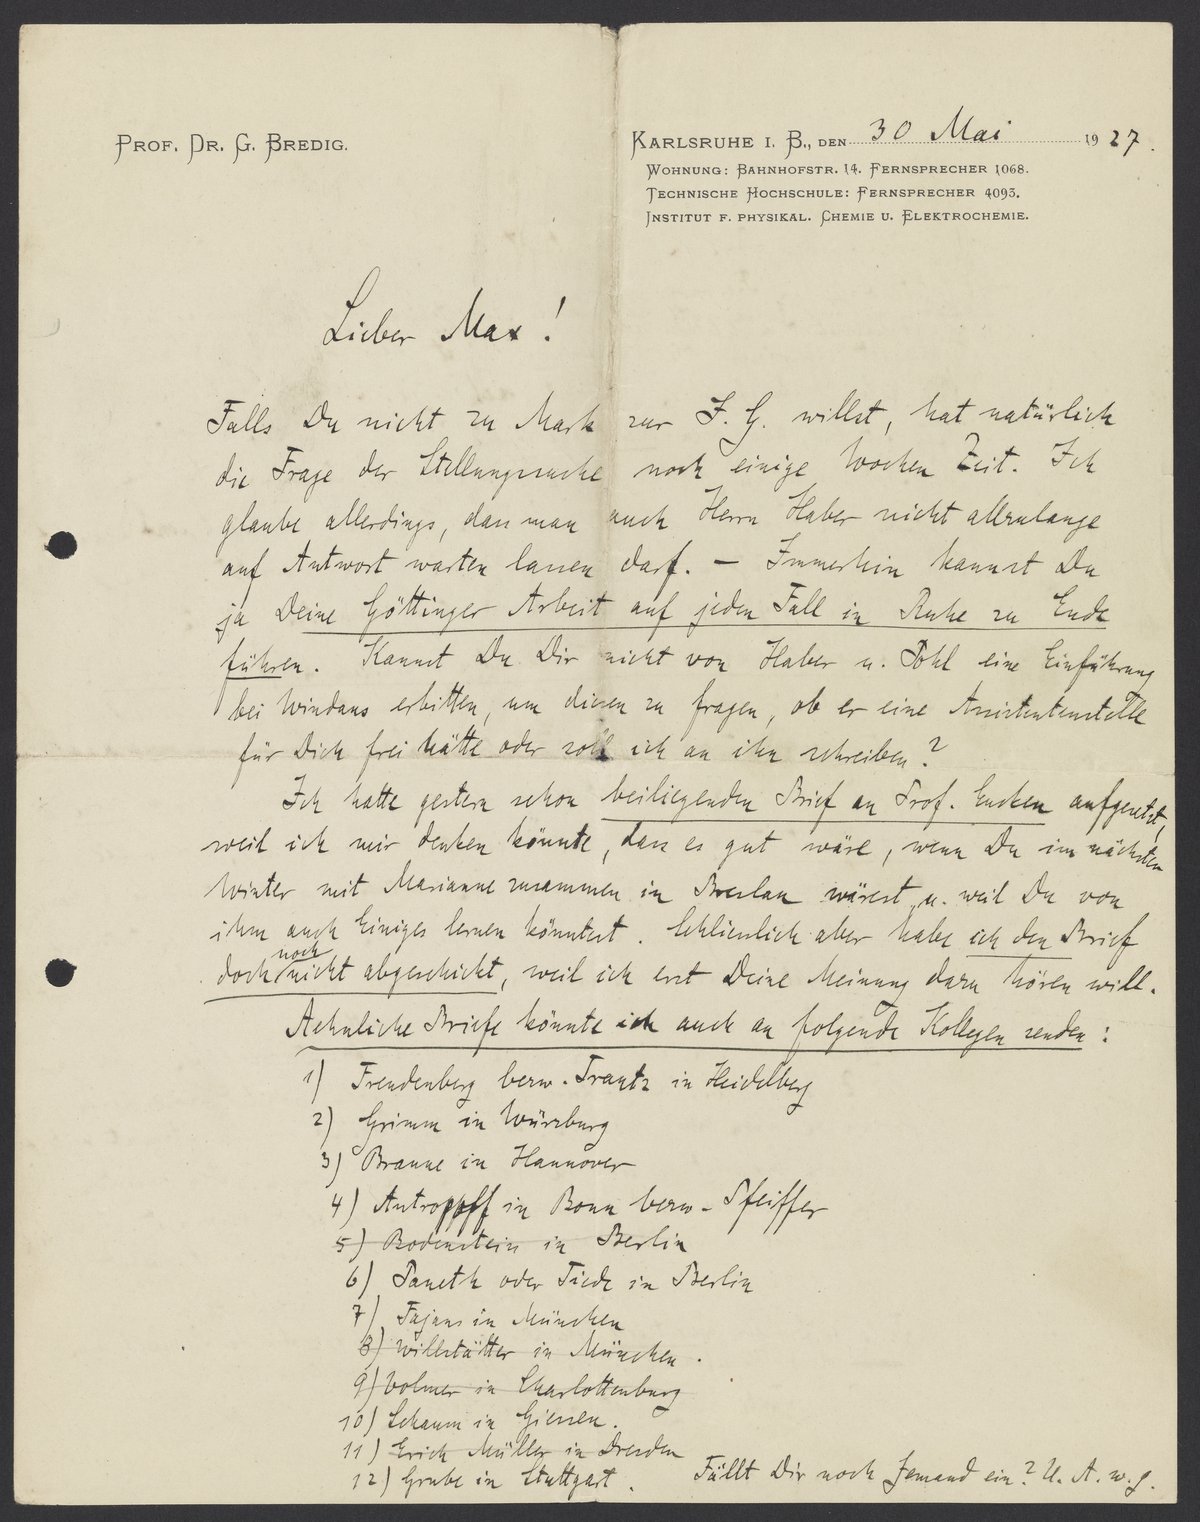 PROF. DR. G. BREDIG.
KARLSRUHE I. B., DEN 30 Mai 1927.
WOHNUNG: BAHNHOFSTR. 14. FERNSPRECHER 1068.
TECHNISCHE HOCHSCHULE: FERNSPRECHER 4093.
INSTITUT F. PHYSIKAL. CHEMIE U. ELEKTROCHEMIE.
Lieber Max!
Falls Du nicht zu Mark zur I. G. willst, hat natürlich
die Frage der Stellungssuche noch einige Wochen Zeit. Ich
glaube allerdings, dass man auch Herrn Haber nicht allzulange
auf Antwort warten lassen darf. — Immerhin kannst Du
ja Deine Göttinger Arbeit auf jeden Fall in Ruhe zu Ende
führen. Kannst Du Dir nicht von Haber u. Pohl eine Einführung
bei Windaus erbitten, um diesen zu fragen, ob er eine Assistentenstelle
für Dich frei hätte oder soll ich an ihn schreiben?
Ich hatte gestern schon beiliegenden Brief an Prof. Eucken aufgesetzt,
weil ich mir denken könnte, dass es gut wäre, wenn Du im nächsten
Winter mit Marianne zusammen in Breslau wärest u. weil Du von
ihm auch Einiges lernen könntest. Schliesslich aber habe ich den Brief
doch noch nicht abgeschickt, weil ich erst Deine Meinung dazu hören will.
Aehnliche Briefe könnte ich auch an folgende Kollegen senden:
1) Freudenberg bezw. Trautz in Heidelberg
2) Grimm in Würzburg
3) Braune in Hannover
4) Antropoff in Bonn bezw. Pfeiffer
5) Bodenstein in Berlin
6) Paneth oder Tiede in Berlin
7) Fajans in München
8) Willstätter in München.
9) Volmer in Charlottenburg
10) Schaum in Giessen.
11) Erich Müller in Dresden
12) Grube in Stuttgart. Fällt Dir noch Jemand ein? U. A. w. g.